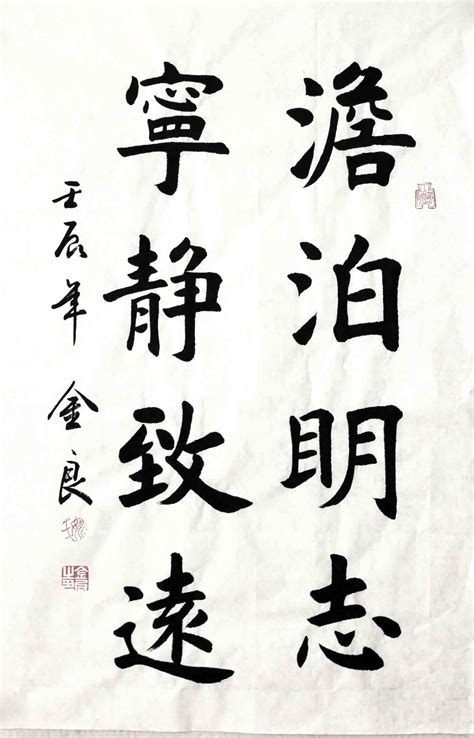 澹泊明志
寧靜致遠
壬辰年 金良